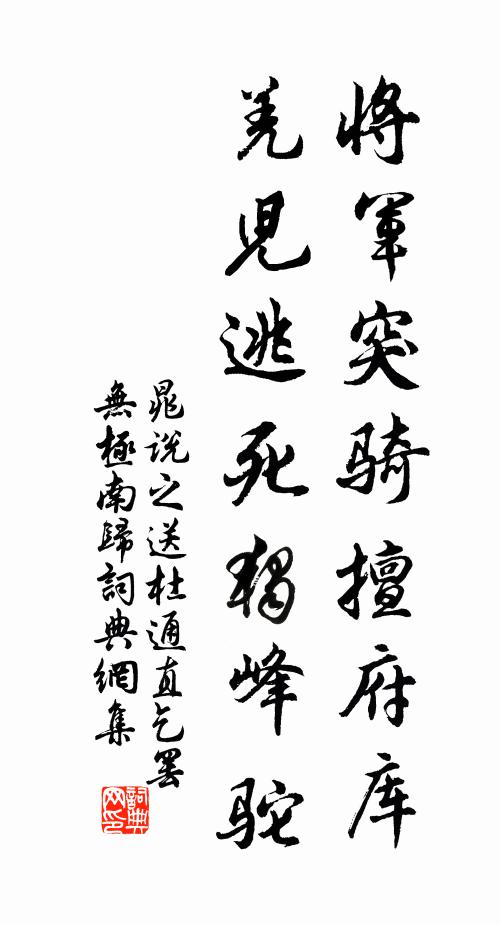 將軍突骑擅府库
羌児逃死独峰駝
晁説之送杜通直乞罢
無極南歸詞典網集
詞典网印